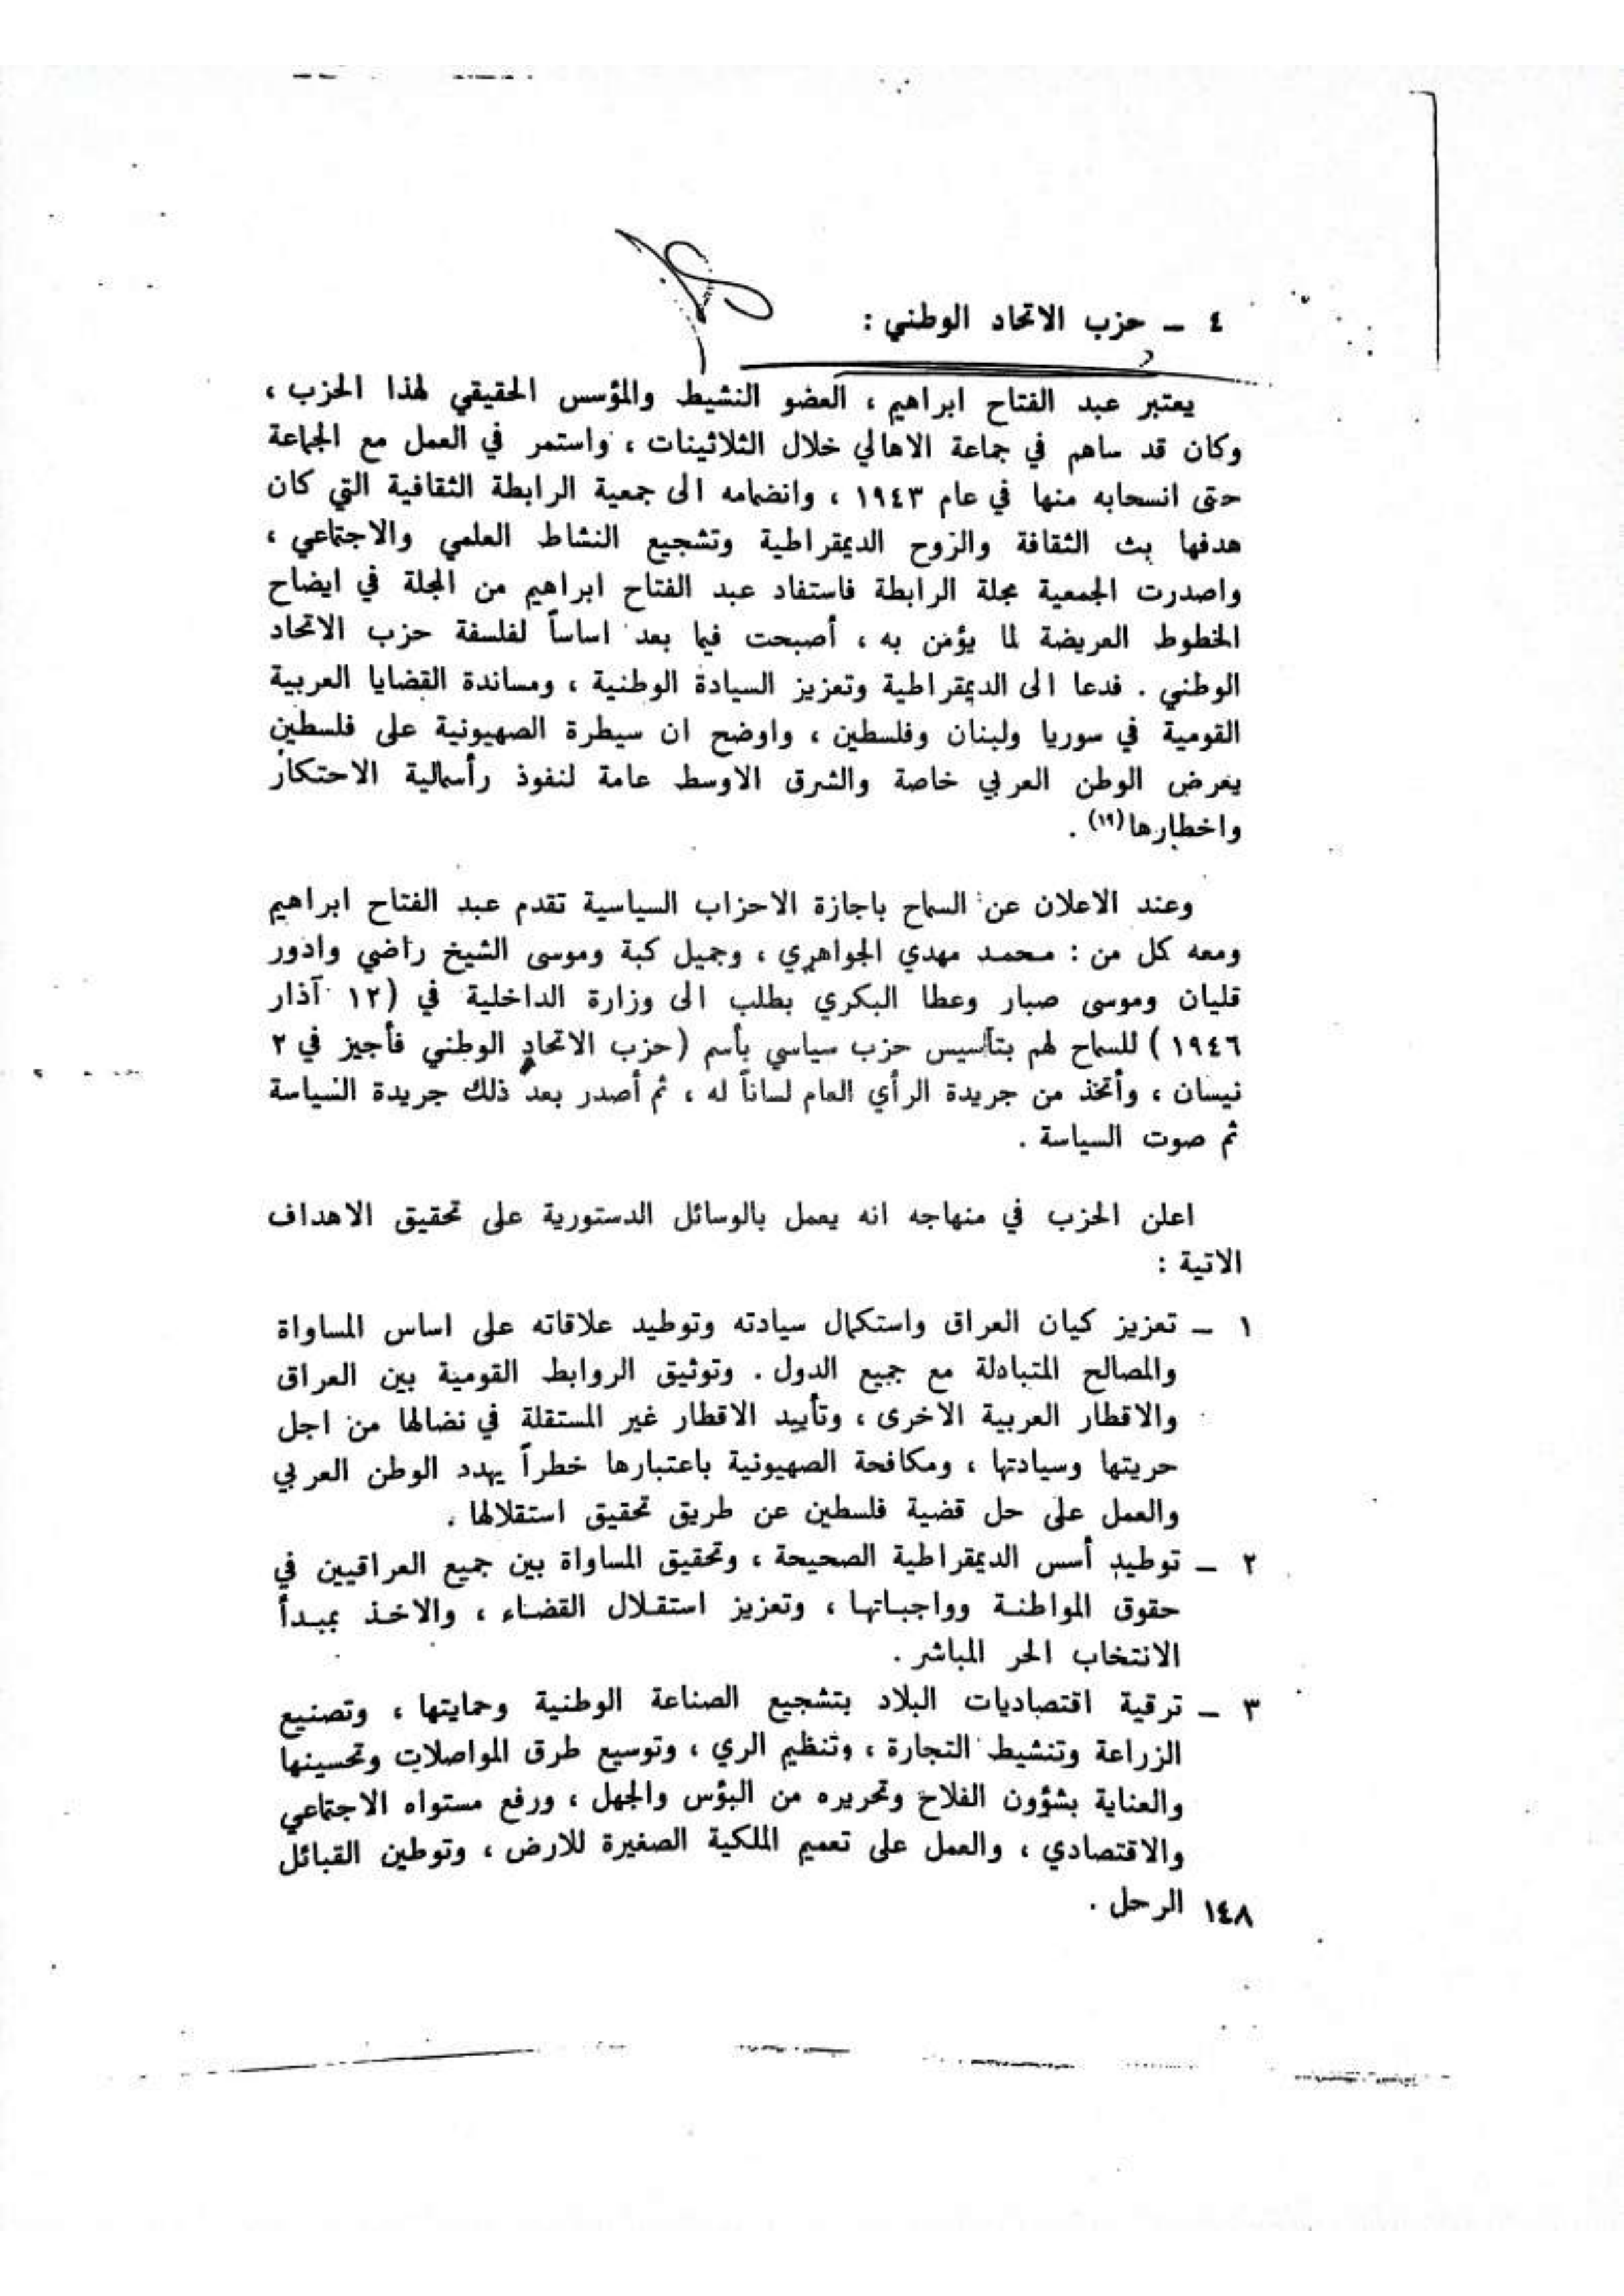 ٤ ـ حزب الاتحاد الوطني :
يعتبر عبد الفتاح ابراهيم ، العضو النشيط والمؤسس الحقيقي لهذا الحزب ،
وكان قد ساهم في جماعة الاهالي خلال الثلاثينات ، واستمر في العمل مع الجماعة
حتى انسحابه منها في عام ١٩٤٣ ، وانضمامه الى جمعية الرابطة الثقافية التي كان
هدفها بث الثقافة والروح الديمقراطية وتشجيع النشاط العلمي والاجتماعي ،
واصدرت الجمعية مجلة الرابطة فاستفاد عبد الفتاح ابراهيم من المجلة في ايضاح
الخطوط العريضة لما يؤمن به ، أصبحت فيما بعد اساساً لفلسفة حزب الاتحاد
الوطني . فدعا الى الديمقراطية وتعزيز السيادة الوطنية ، ومساندة القضايا العربية
القومية في سوريا ولبنان وفلسطين ، واوضح ان سيطرة الصهيونية على فلسطين
يعرض الوطن العربي خاصة والشرق الاوسط عامة لنفوذ رأسمالية الاحتكار
واخطارها (١٩) .
وعند الاعلان عن السماح باجازة الاحزاب السياسية تقدم عبد الفتاح ابراهيم
ومعه كل من : محمد مهدي الجواهري ، وجميل كبة وموسى الشيخ راضي وادور
قليان وموسى صبار وعطا البكري بطلب الى وزارة الداخلية في (١٢ آذار
١٩٤٦ ) للسماح لهم بتأسيس حزب سياسي بأسم (حزب الاتحاد الوطني فأجيز في ٢
نيسان ، وأتخذ من جريدة الرأي العام لساناً له ، ثم أصدر بعد ذلك جريدة السياسة
ثم صوت السياسة .
اعلن الحزب في منهاجه انه يعمل بالوسائل الدستورية على تحقيق الاهداف
الاتية :
١ ـ تعزيز كيان العراق واستكمال سيادته وتوطيد علاقاته على اساس المساواة
والمصالح المتبادلة مع جميع الدول . وتوثيق الروابط القومية بين العراق
والاقطار العربية الاخرى ، وتأييد الاقطار غير المستقلة في نضالها من اجل
حريتها وسيادتها ، ومكافحة الصهيونية باعتبارها خطراً يهدد الوطن العربي
والعمل على حل قضية فلسطين عن طريق تحقيق استقلالها .
٢ ـ توطيد أسس الديمقراطية الصحيحة ، وتحقيق المساواة بين جميع العراقيين في
حقوق المواطنة وواجباتها ، وتعزيز استقلال القضاء ، والاخذ بمبدأ
الانتخاب الحر المباشر .
٣ ـ ترقية اقتصاديات البلاد بتشجيع الصناعة الوطنية وحمايتها ، وتصنيع
الزراعة وتنشيط التجارة ، وتنظيم الري ، وتوسيع طرق المواصلات وتحسينها
والعناية بشؤون الفلاح وتحريره من البؤس والجهل ، ورفع مستواه الاجتماعي
والاقتصادي ، والعمل على تعميم الملكية الصغيرة للارض ، وتوطين القبائل
الرحل .
١٤٨